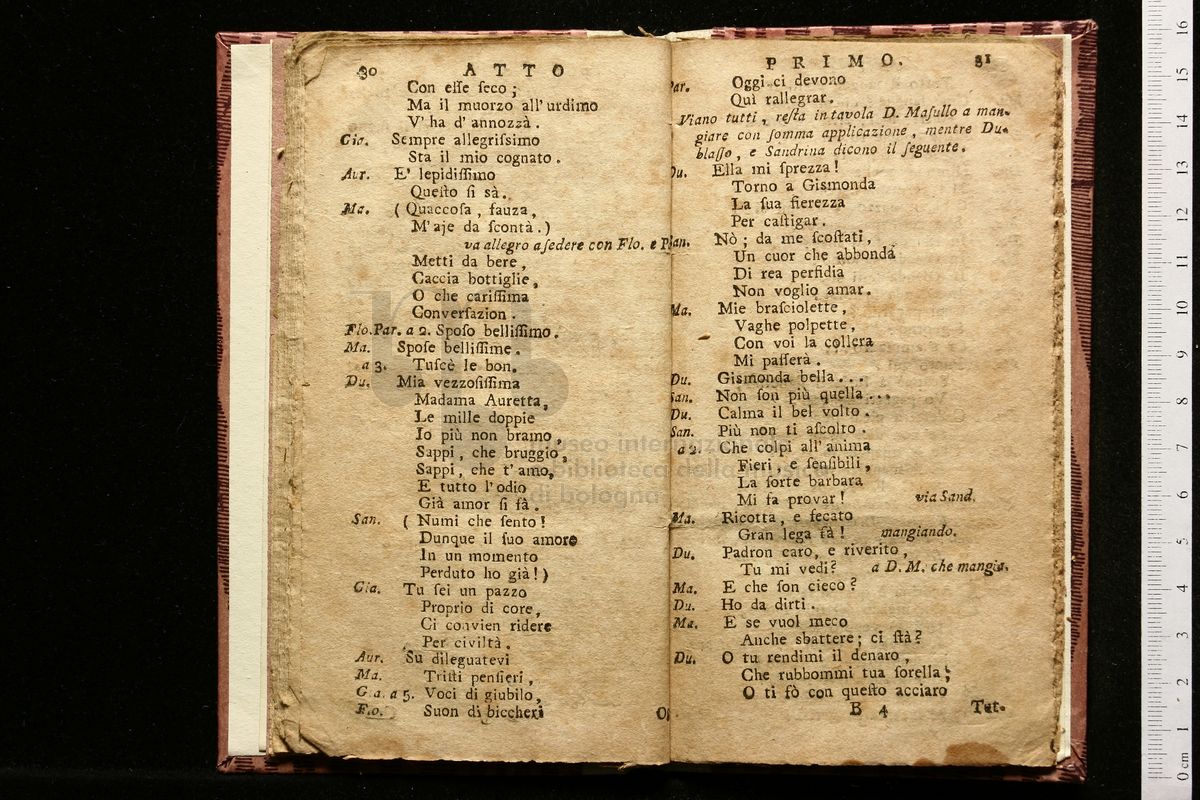 30 ATTO
Con eſſe ſeco;
Ma il muorzo all'urdimo
V'ha d'annozzà.
Cia. Sempre allegriſsimo
Sta il mio cognato.
Aur. E' lepidiſſimo
Queſto ſi sà.
Ma. (Quaccoſa, fauza,
M'aje da ſcontà.)
va allegro a ſedere con Flo. e Par.
Metti da bere,
Caccia bottiglie,
O che cariſſima
Converſazion.
Flo. Par. a 2. Spoſo belliſſimo.
Ma. Spoſe belliſſime.
a 3. Tuſcè le bon.
Du. Mia vezzoſiſſima
Madama Auretta,
Le mille doppie
Io più non bramo,
Sappi, che bruggio,
Sappi, che t'amo,
E tutto l'odio
Già amor ſi fà.
San. (Numi che ſento!
Dunque il ſuo amore
In un momento
Perduto ho già!)
Cia. Tu ſei un pazzo
Proprio di core,
Ci convien ridere
Per civiltà.
Aur. Su dileguatevi
Ma. Triſti penſieri,
a 5. Voci di giubilo,
Flo. Suon di biccheri
PRIMO. 31
Par. Oggi ci devono
Quì rallegrar.
Viano tutti, reſta in tavola D. Maſullo a man-
giare con ſomma applicazione, mentre Du-
blaſſo, e Sandrina dicono il ſeguente.
Du. Ella mi ſprezza!
Torno a Gismonda
La ſua fierezza
Per caſtigar.
San. Nò; da me ſcoſtati,
Un cuor che abbonda
Di rea perfidia
Non voglio amar.
Ma. Mie braſciolette,
Vaghe polpette,
Con voi la collera
Mi paſſerà.
Du. Gismonda bella...
San. Non ſon più quella...
Du. Calma il bel volto.
San. Più non ti aſcolto.
a 2. Che colpi all'anima
Fieri, e ſenſibili,
La ſorte barbara
Mi fa provar! via Sand.
Ma. Ricotta, e fecato
Gran lega fà! mangiando.
Du. Padron caro, e riverito,
Tu mi vedi? a D. M. che mangia.
Ma. E che ſon cieco?
Du. Ho da dirti.
Ma. E se vuol meco
Anche sbattere; ci ſtà?
Du. O tu rendimi il denaro,
Che rubbommi tua ſorella;
O ti fò con queſto acciaro
B 4 Tut-
museo internazionale
e biblioteca della musica
di bologna
0 cm 1 2 3 4 5 6 7 8 9 10 11 12 13 14 15 16